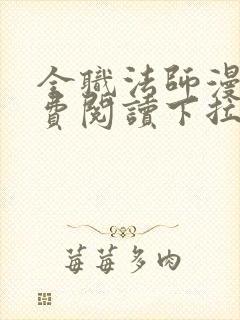 全職法師漫
費閱讀下拉
莓莓多肉